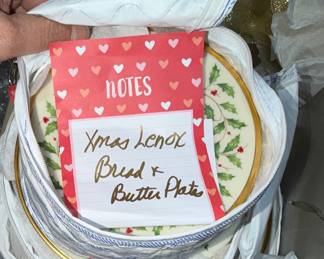 NOTES
Xmas Lenox
Bread &
Butter Plates